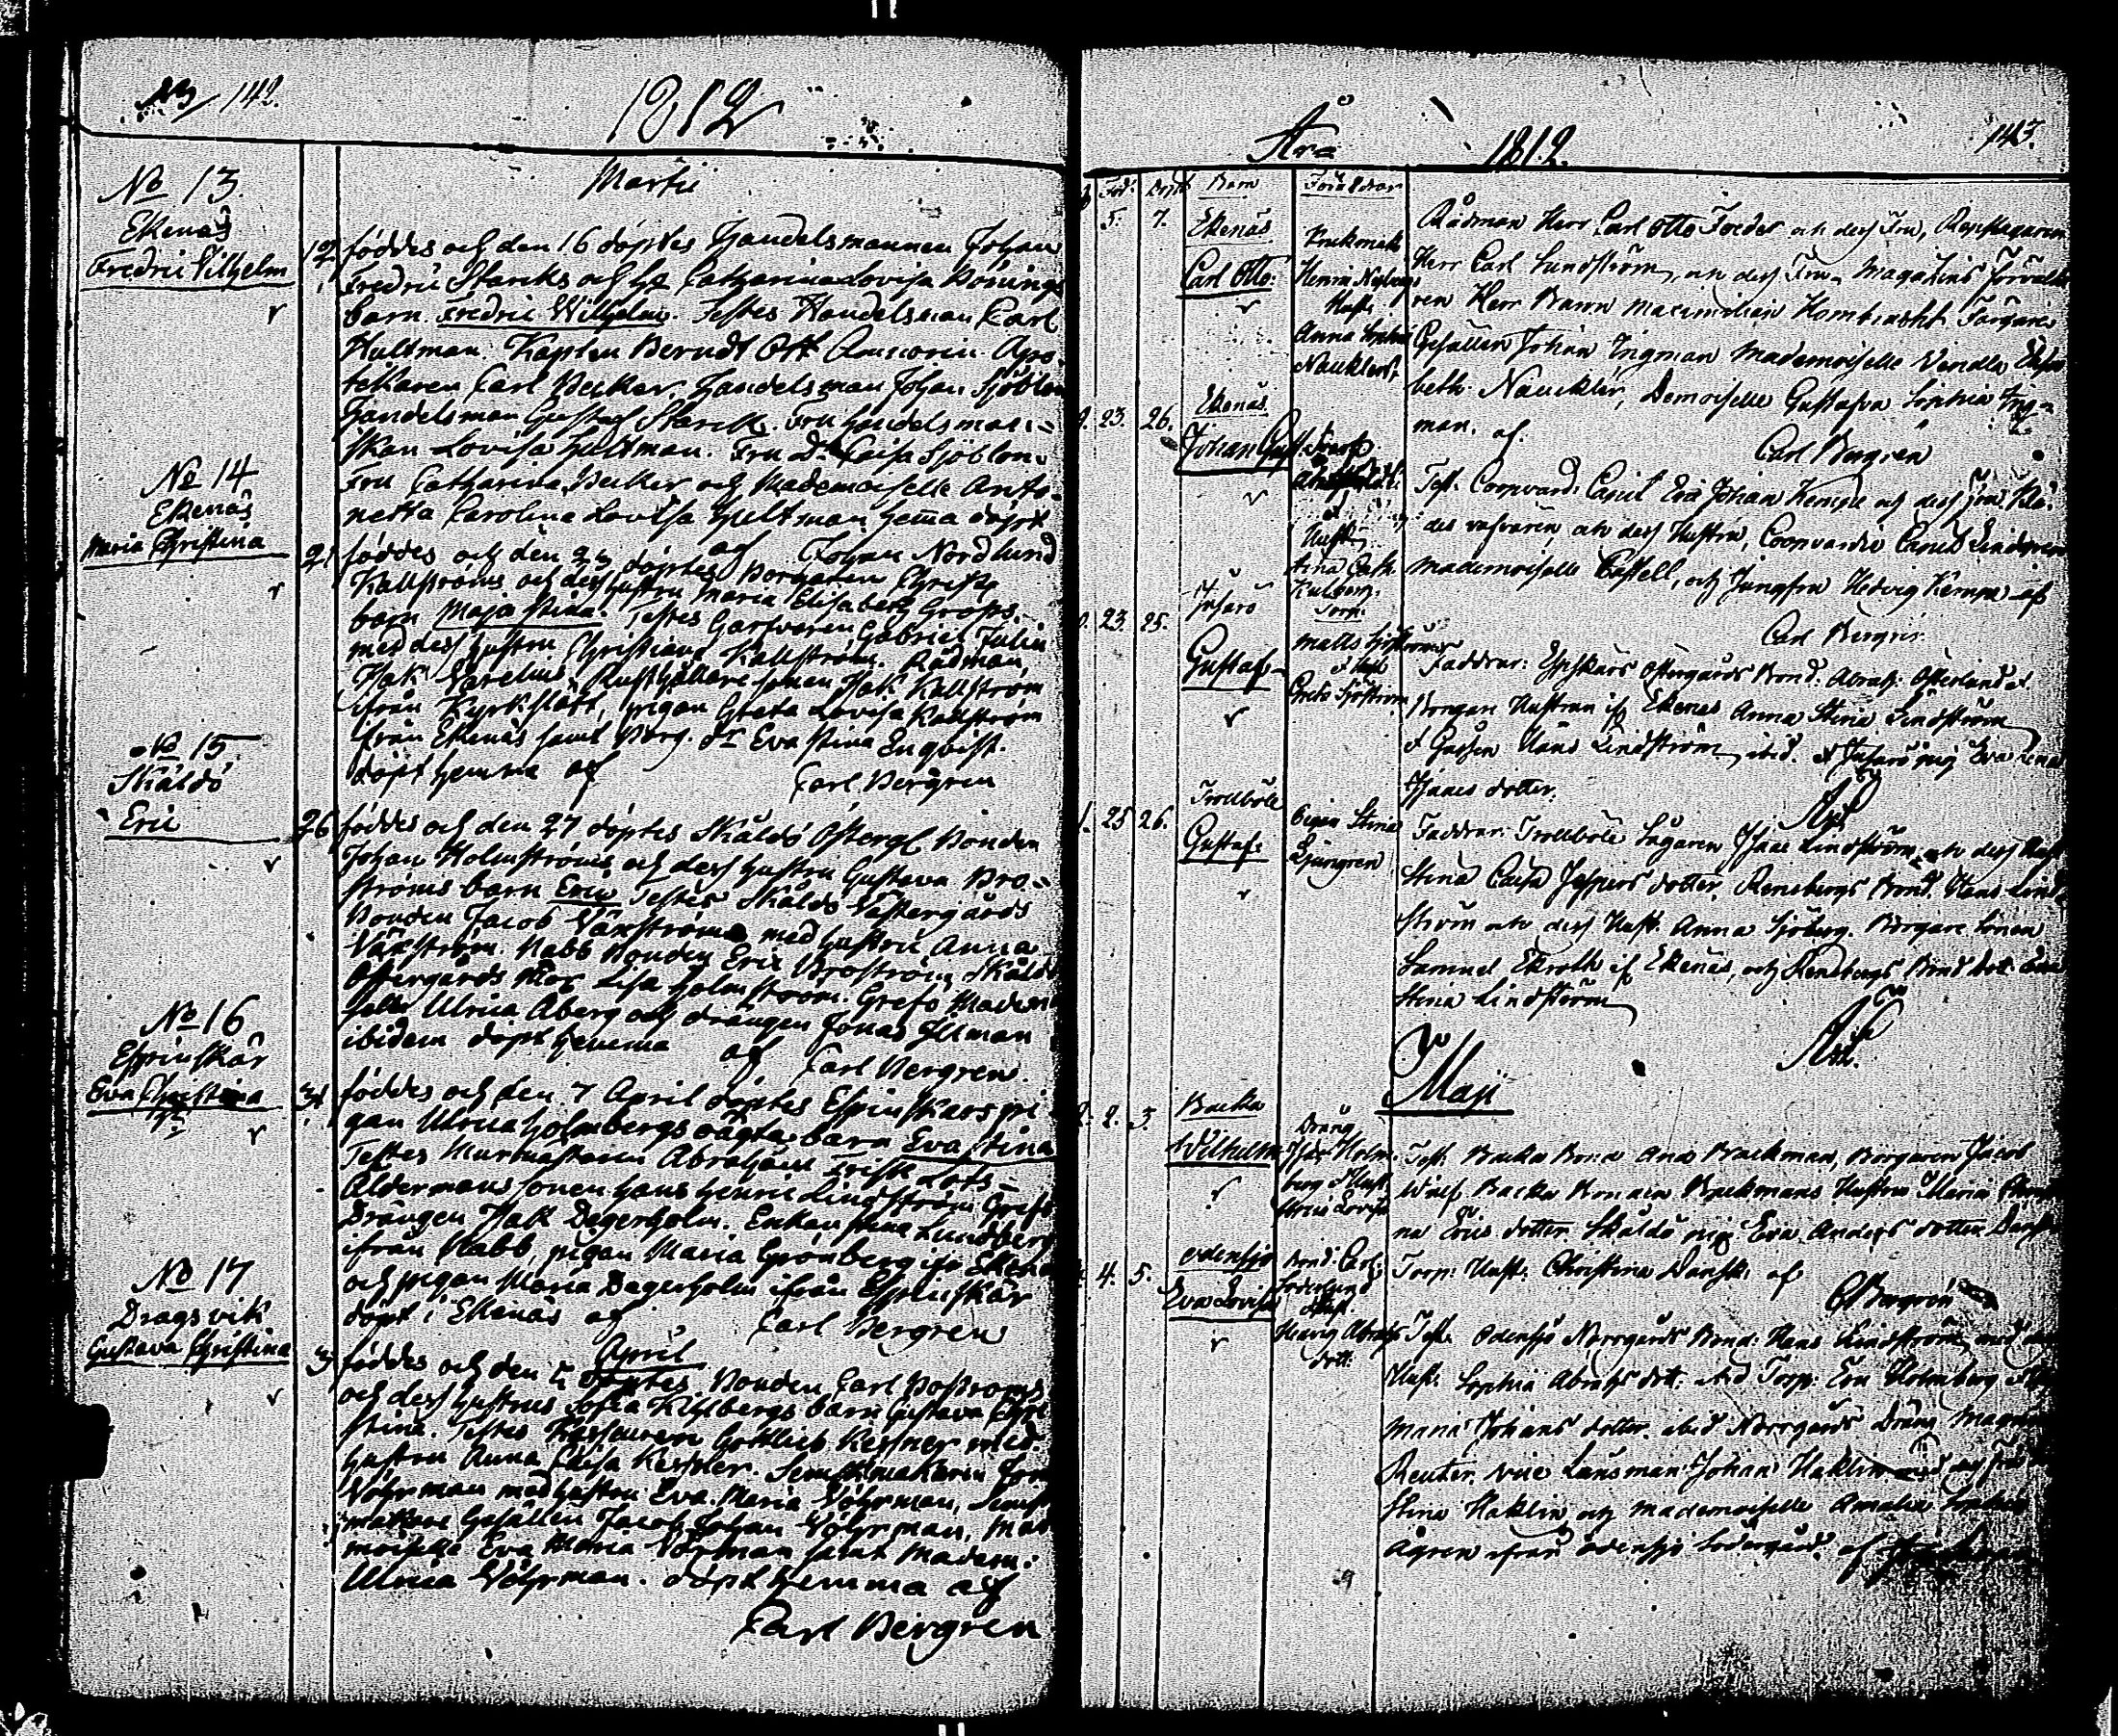 142.
1812
Martii
No 13.
Ekenäs
Fredric Vilhelm
12 föddes och den 16 döptes Handelsmannen Johan
Fredric Starcks och Catharina Lovisa Bönings
barn Fredric Wilhelm. Testes Handelsman Carl
Hultman. Kapten Berndt Apo-
tekaren Carl Becker. Handelsman Johan Sjöblom
Handelsman Gustaf Starck. Fru Handelsman-
skan Lovisa Hultman. Fru Caisa Sjöblom.
Fru Catharina Becker och Mademoiselle Anto-
netta Carolina Lovisa Hultman hema döpt
af Johan Nordlund
No 14
Ekenäs
Maria Christina
21 föddes och den 23 döptes Borgaren Christ
Kallströms och dess hustru Maria Elisabeth Grops
barn Maja Stina. Testes Garfvaren Gabriel Julin
med dess hustru Christiana Kallström. Rådman
Isak Varelius. Rusthållare sonen Isak Kallström
ifrån Kyrkslätt, pigan Greta Lovisa Kallström
ifrån Ekenäs samt Borg. dr Eva Stina Enqvist.
döpt hemma af Carl Bergren
No 15
Skåldö
Eric
26 föddes och den 27 döptes Skåldö Österg. Bonden
Johan Holmströms och dess hustru Gustava Bro-
ströms barn Eric Testes Skåldö Västergårds
Bonden Jacob Växström med hustru Anna
Växström. Nabb Bonden Eric Broström Skåldö
Östergårds Lisa Holmström. Grefs Madem
Ulrica Åberg och drängen Jonas
ibidem döpt hemma af Carl Bergren.
No 16
Espinskär
Eva Christina
31 föddes och den 7 April döptes Espinskärs pi-
gan Ulrica Holmbergs oägta barn Eva Stina
Testes Murmästaren Abraham Frisk Lots-
Åldermans sonen Hans Henric Lindström Grefs
Drängen Isak Degerholm. Enkan Stina Lundberg
ifrån Nabb, pigan Maria Grönberg ifr Ekenäs
och pigan Maria Degerholm ifrån Espinskär
döpt i Ekenäs af Carl Bergren
April
No 17
Dragsvik
Gustava Christina
3 föddes och den 5 döptes Bonden Carl Boströms
och dess hustrus Sofia Kihlbergs barn Gustava Chri
stina. Testes Gottlieb Kessner med
hustru Anna Caisa Kessner.
Vöhrman med hustru Eva Maria Vöhrman,
makare Gesällen Jacob Johan Vöhrman, Mad
moiselle Eva Maria Vöhrman samt Madem:
Ulrica Vöhrman. döpt hemma af
Carl Bergren
Åra 1812.
143.
Föd: Döpt Barn Föräldrar
5. 7. Ekenäs
Carl Otto:
Krukomak
Henric Nyberg
Hust:
Anna Sophia
Naucklers.
Rådman Herr Carl Otto Forder och dess Fru, Repslagaren
Herr Carl Sundström, och dess Fru Magazins Förvalta
ren Herr Baron Maximilian Färgare
Gesällen Johan Ingman Mademoiselle Vendla Elisa
beth Naucklér, Demoiselle Gustafva Sophia Ing-
man. af. Carl Bergren
23. 26. Ekenäs
Johan Gust
Hust.
Stina Cath.
Test. Coopvard. Capit. Johan Kempe och dess Fru. Klä-
des väfvaren och dess Hustru, Coopvardie Capit Lindgren
Mademoiselle Castell, och Jungfru Hedvig Kempe af
Carl Bergren
23. 25. Jusarö
Gustaf
Torp.
Matts Sjöström
& Hust
Greta Sjöström
Faddrar: Espskärs Östergårds Bond. Abrah. Österlund &
Borgar Hustrun if Ekenäs Anna Stina Lindström
& Gossen Hans Lindström ibid. & Jusarö pig Eva Lena
Isaacs dotter.
25 26. Trollböle
Gustaf:
Pigan Stina
Ljungren
Faddrar: Trollböle Sågaren Isaac Lindström och dess Hust
Stina Caisa Jespers dotter, Rensbergs Bond. Hans Lind
ström och dess Hust. Anna Sjöberg. Borgare Sonen
Samuel Ekroth if Ekenäs, och Rensbergs Bond dott.
Stina Lindström
Maji
2. 3. Backa
Wilhelm
Dräng
Isac Holm-
berg & Hust
Stina Lovisa
Test. Backa Bond And Brackman, Borgaren Jacob
Wulf. Backa Bonden Brackmans Hustru Maria
na Erics dotter Skåldö pig Eva Anders dotter Dansk
Torp: Hust: Christina Dansk. af C Bergren
4. 5. Odensjö
Eva Lovisa
Bond. Carl
Söderlund
& Hust
Hedvig Abrahs
dott:
Test. Odensjö Norrgårds Bond: Hans Lindström, med
Hust. Sophia Abrahs dott: ibid Torp: Eric Holmberg
Maria Johans dotter ibid Norrgårds Dräng Magnus
Reuter. vice Länsman Johan Haklin
Stina Haklin och Mademoiselle Amalia Sophia
Ågren ifrån Odensjö Södergård. af